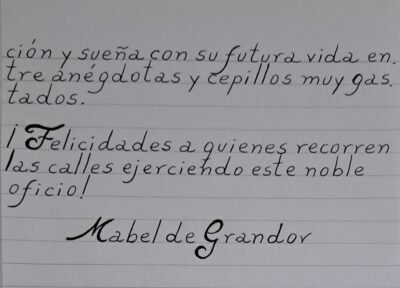 ción y sueña con su futura vida en.
tre anégdotas y cepillos muy gas.
tados.
¡Felicidades a quienes recorren
las calles ejerciendo este noble
oficio!
Mabel de Grandov